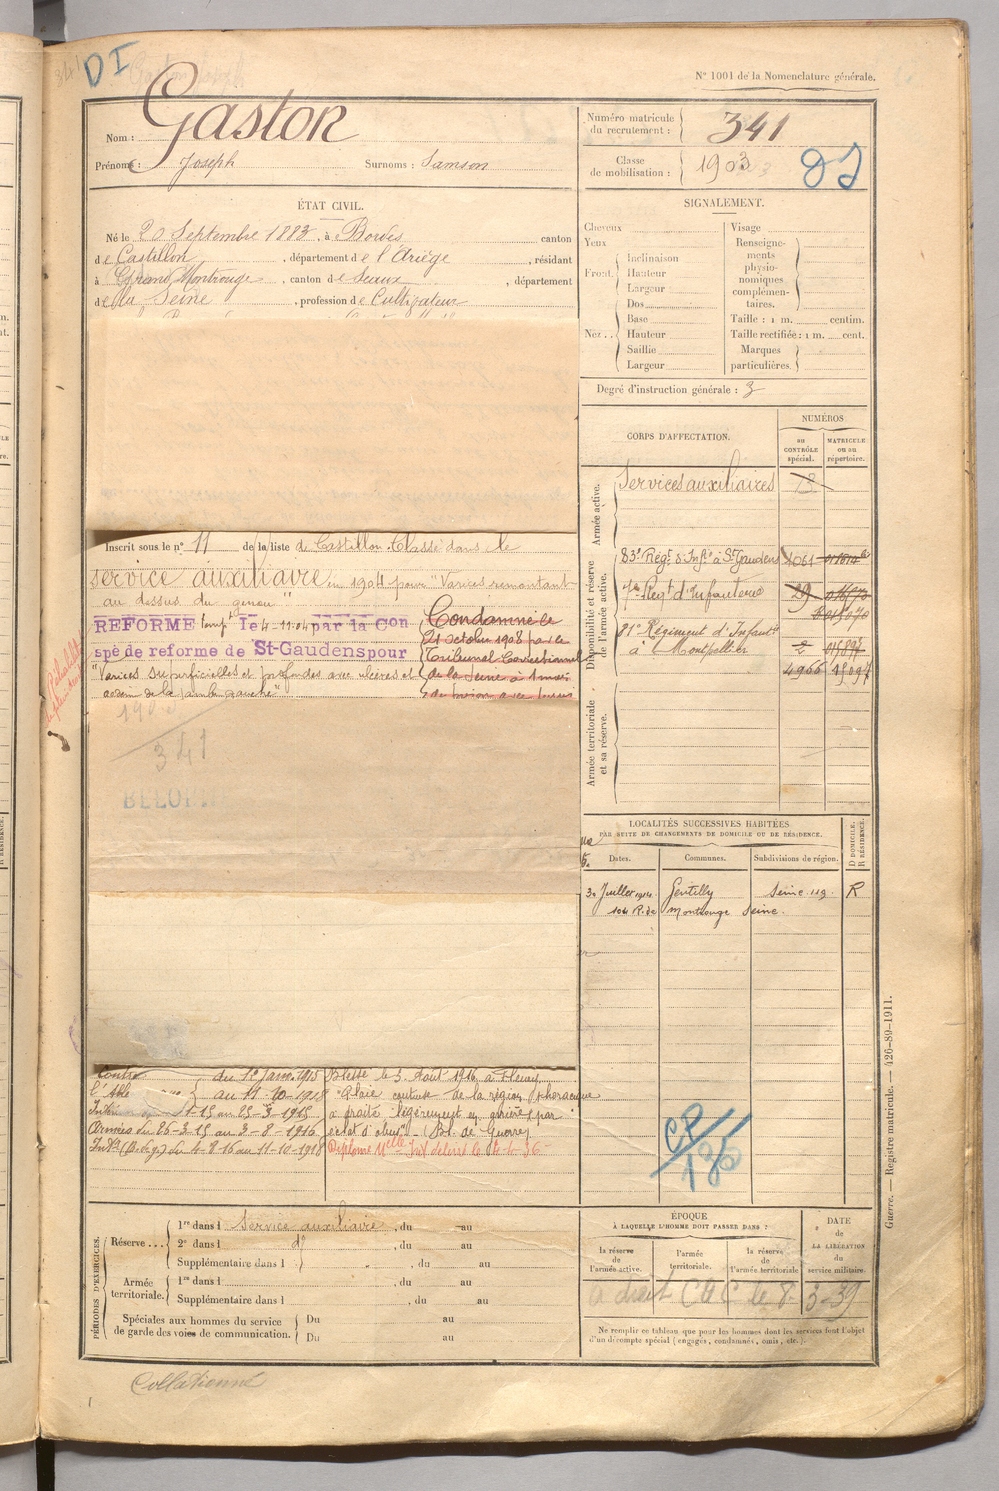 DI
N° 1001 de la Nomenclature générale.
Nom : Gaston
Prénoms : Joseph Surnoms : Samson
Numéro matricule du recrutement : 341
Classe de mobilisation : 1903
ÉTAT CIVIL.
Né le 20 Septembre 1883, à Bordes canton
de Castillon, département de l'Ariège, résidant
à Grand Montrouge, canton de Sceaux, département
de la Seine, profession de Cultivateur
SIGNALEMENT.
Cheveux
Yeux
Front
Inclinaison
Hauteur
Largeur
Nez
Dos
Base
Hauteur
Saillie
Largeur
Visage
Renseignements physionomiques complémentaires.
Taille : 1 m. centim.
Taille rectifiée : 1 m. cent.
Marques particulières.
Degré d'instruction générale : 3
CORPS D'AFFECTATION.
NUMÉROS
au CONTRÔLE spécial.
MATRICULE ou au répertoire.
Armée active.
Services auxiliaires
Disponibilité et réserve de l'armée active.
83e Régt d'Infie à St Gaudens 1061
Regt d'Infanterie 29
81e Régiment d'Infant
à Montpellier
4966
Armée territoriale et sa réserve.
Inscrit sous le n° 11 de la liste de Castillon. Classé dans le
service auxiliaire en 1904 pour "Varices remontant
au dessus du genou"
REFORMÉ tempt le 4-11-04 par la Con
spé de reforme de St-Gaudens pour
"Varices superficielles et profondes avec ulcères et
de la jambe gauche"
Condamné le
21 octobre 1908 par le
Tribunal Correctionnel
de la Seine à 1 mois
de prison avec sursis
341
LOCALITÉS SUCCESSIVES HABITÉES
PAR SUITE DE CHANGEMENTS DE DOMICILE OU DE RÉSIDENCE.
Dates. Communes. Subdivisions de région. D DOMICILE. R RÉSIDENCE.
30 Juillet 1914 Gentilly Seine R
104 R. de Montrouge Seine.
Contre
l'Alle
du 1er Janv. 1915
au 11-10-1918
au 25-3-1915
Armées du 26-3-15 au 3-8-1916
Intr (B. de g.) du 4-8-16 au 11-10-1918
Blessé le 3 Août 1916 à Fleury
"Plaie contuse de la région thoracique
à droite légèrement en arrière par
éclat d'obus" (Bl. de Guerre)
CR
PÉRIODES D'EXERCICES.
Réserve ... 1re dans l Service auxiliaire, du au
2e dans l d°, du au
Supplémentaire dans l , du au
Armée territoriale. 1re dans l , du au
Supplémentaire dans l , du au
Spéciales aux hommes du service de garde des voies de communication. Du au
Du au
ÉPOQUE
À LAQUELLE L'HOMME DOIT PASSER DANS :
la réserve de l'armée active.
l'armée territoriale.
la réserve de l'armée territoriale
DATE de LA LIBÉRATION du service militaire.
a droit C le 8-3-39
Ne remplir ce tableau que pour les hommes dont les services font l'objet
d'un décompte spécial (engagés, condamnés, omis, etc.).
Guerre. — Registre matricule. — 426-89-1911.
Collationné